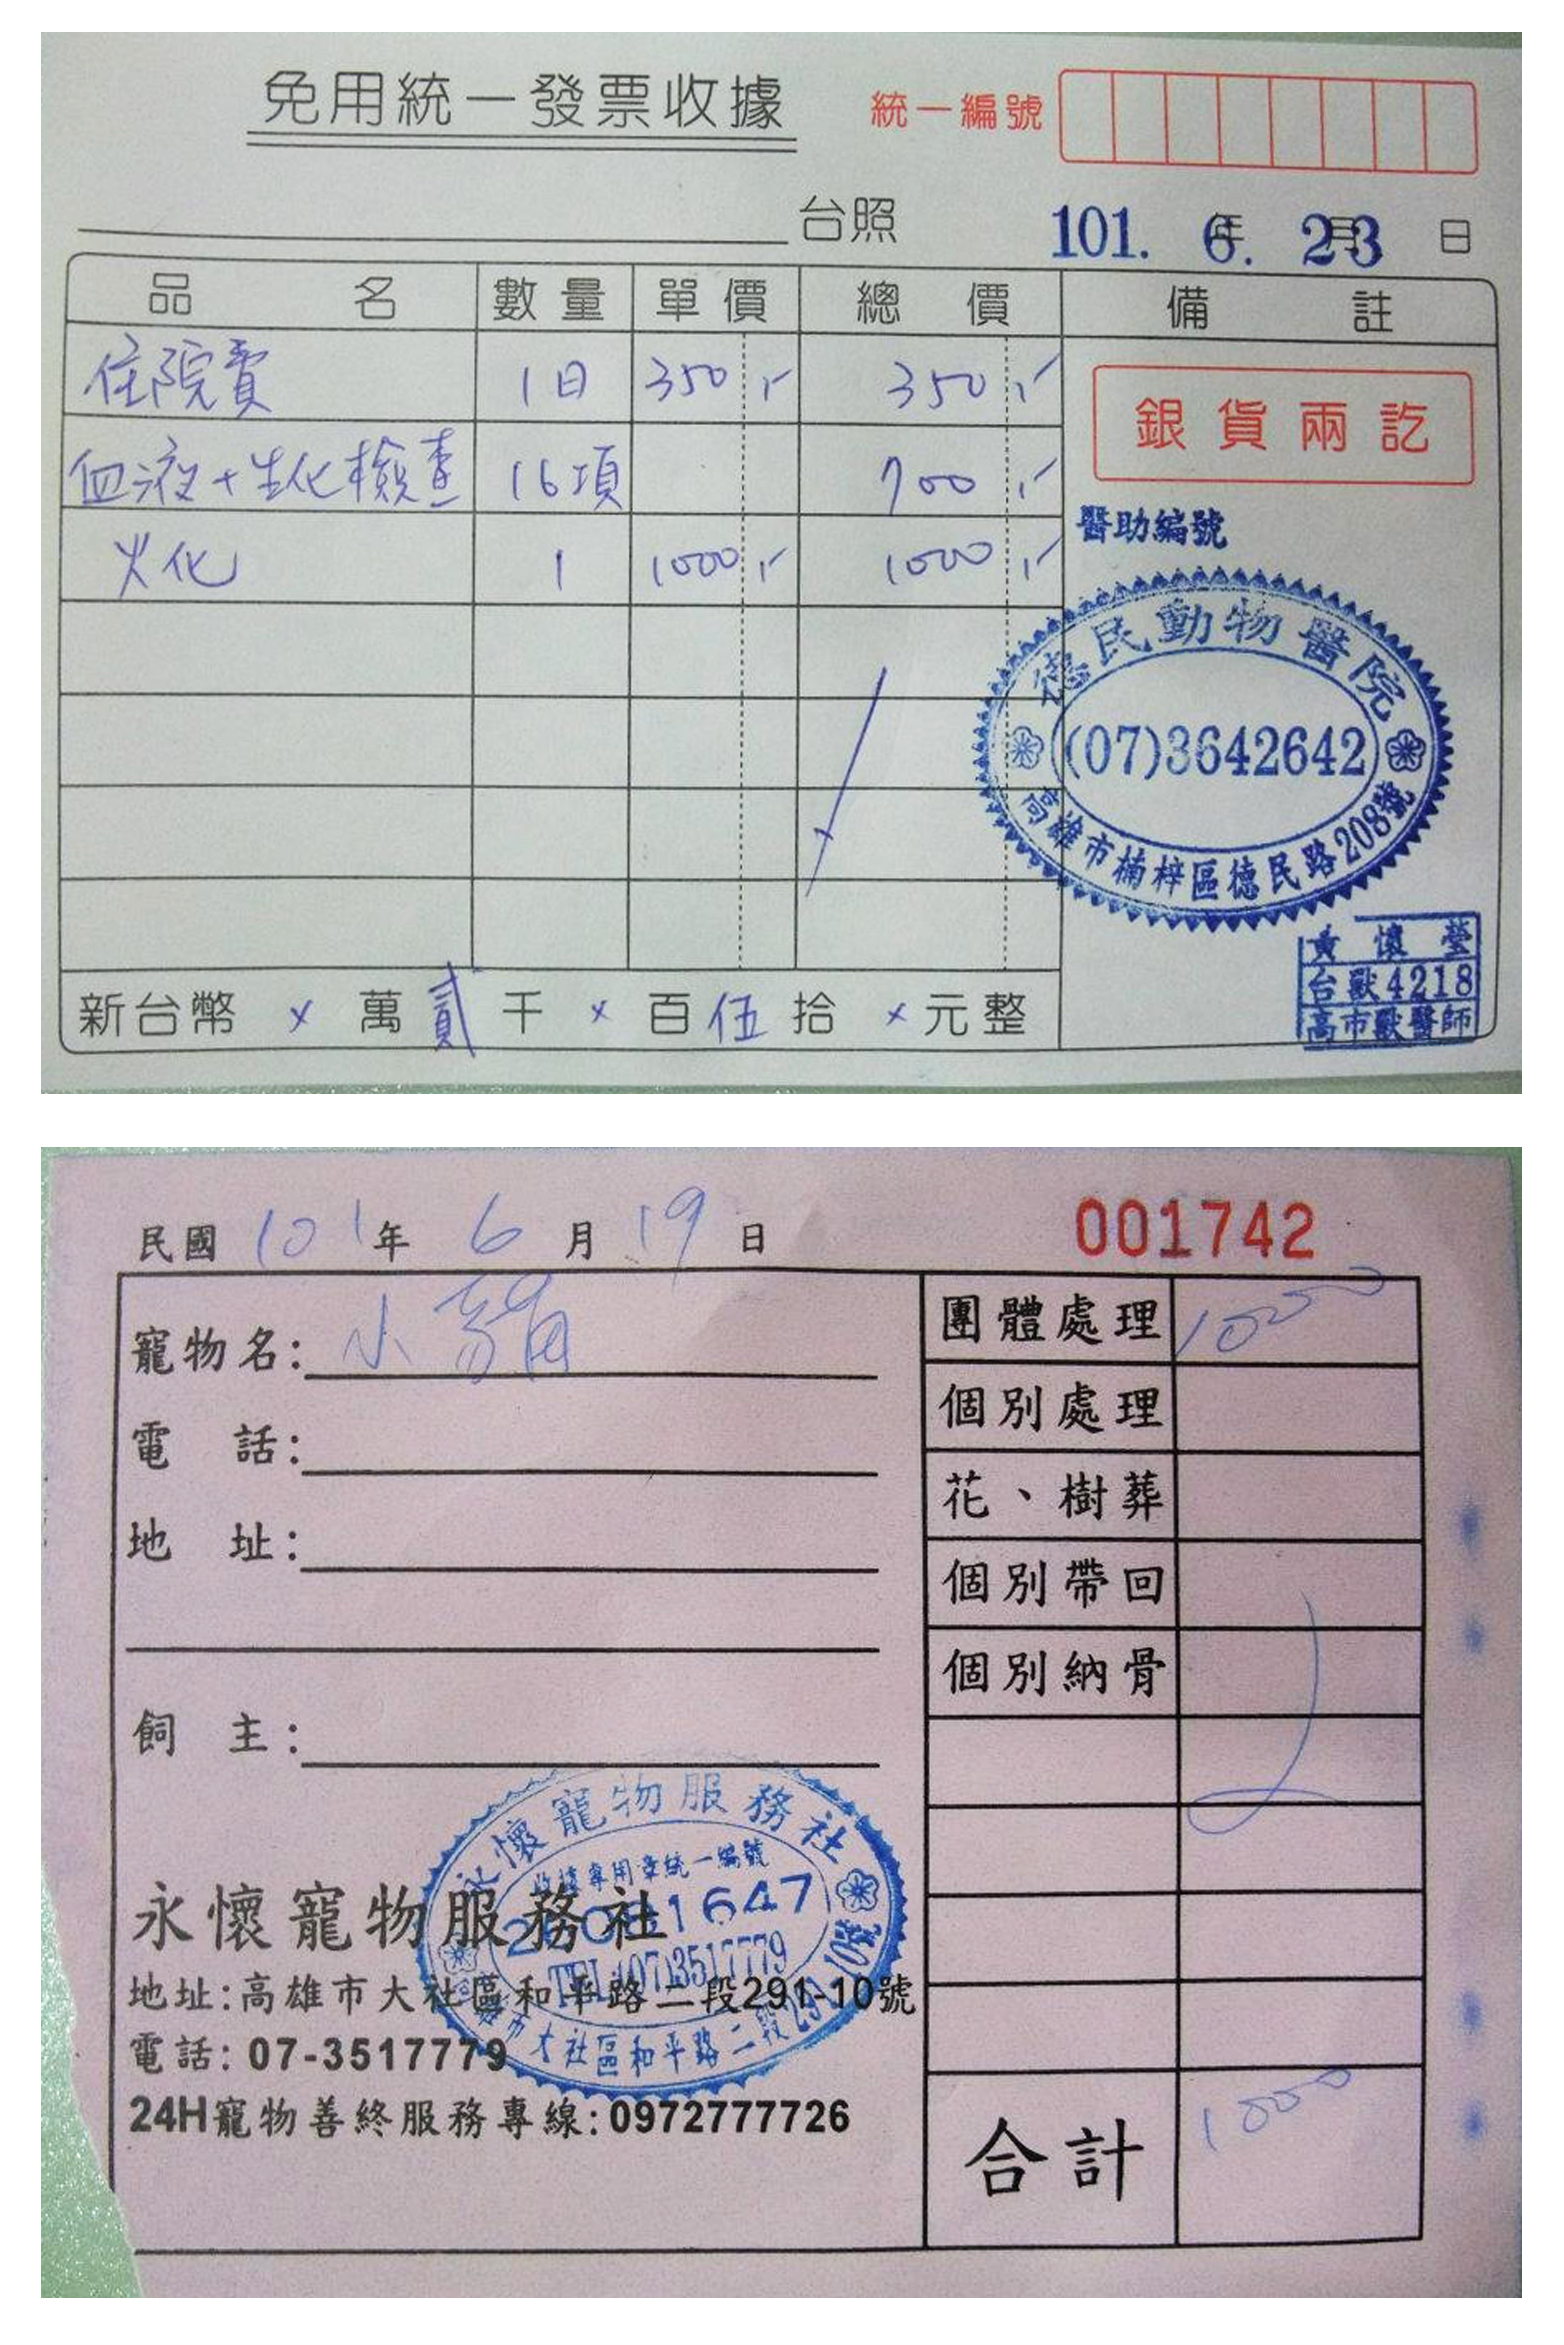 免用統一發票收據
統一編號
台照
101. 6. 23
年 月 日
品名 數量 單價 總價 備註
住院費 1日 350,- 350,-
血液+生化檢查 16項 700,-
火化 1 1000,- 1000,-
銀貨兩訖
醫助編號
德民動物醫院
(07)3642642
高雄市楠梓區德民路208號
黃懷瑩
台獸4218
高市獸醫師
新台幣 × 萬 貳 千 × 百 伍 拾 × 元整
民國 101 年 6 月 19 日
001742
寵物名: 小
電話:
地址:
飼主:
團體處理 1000
個別處理
花、樹葬
個別帶回
個別納骨
合計 1000
永懷寵物服務社
收據專用章統一編號
1647
TEL:(07)3517779
市大社區和平路二段291-10號
永懷寵物服務社
地址:高雄市大社區和平路二段291-10號
電話: 07-3517779
24H寵物善終服務專線:0972777726